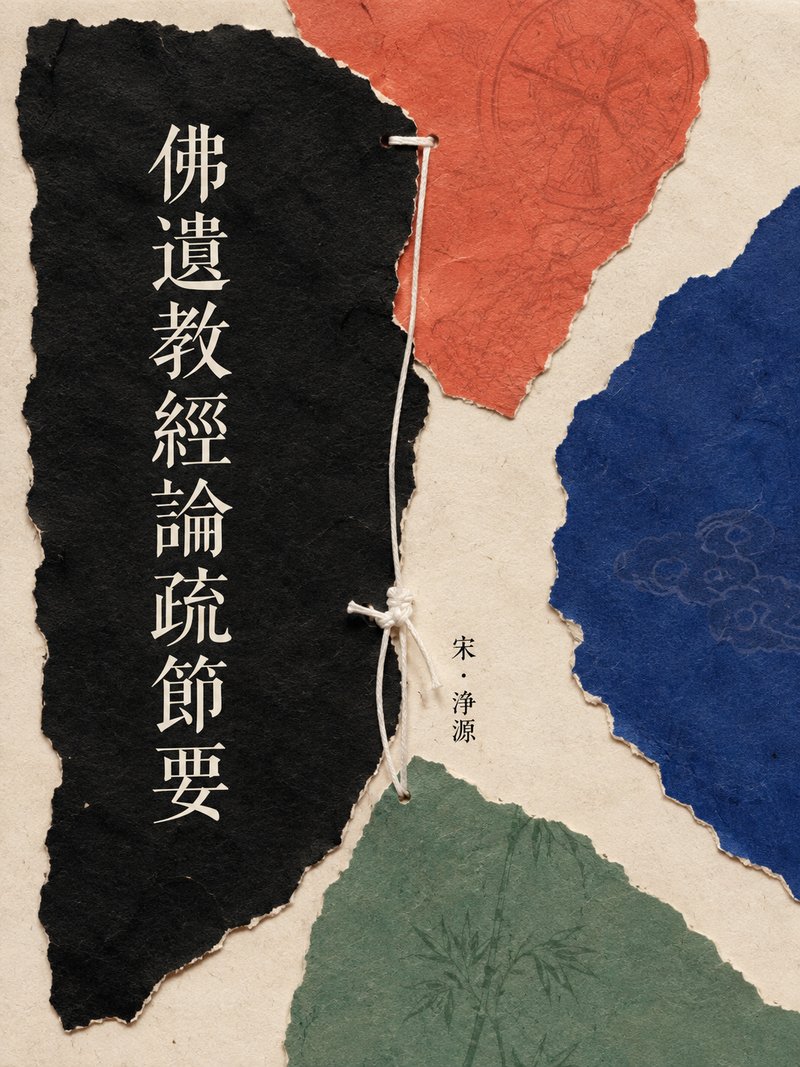 佛遺教經論疏節要
宋·淨源